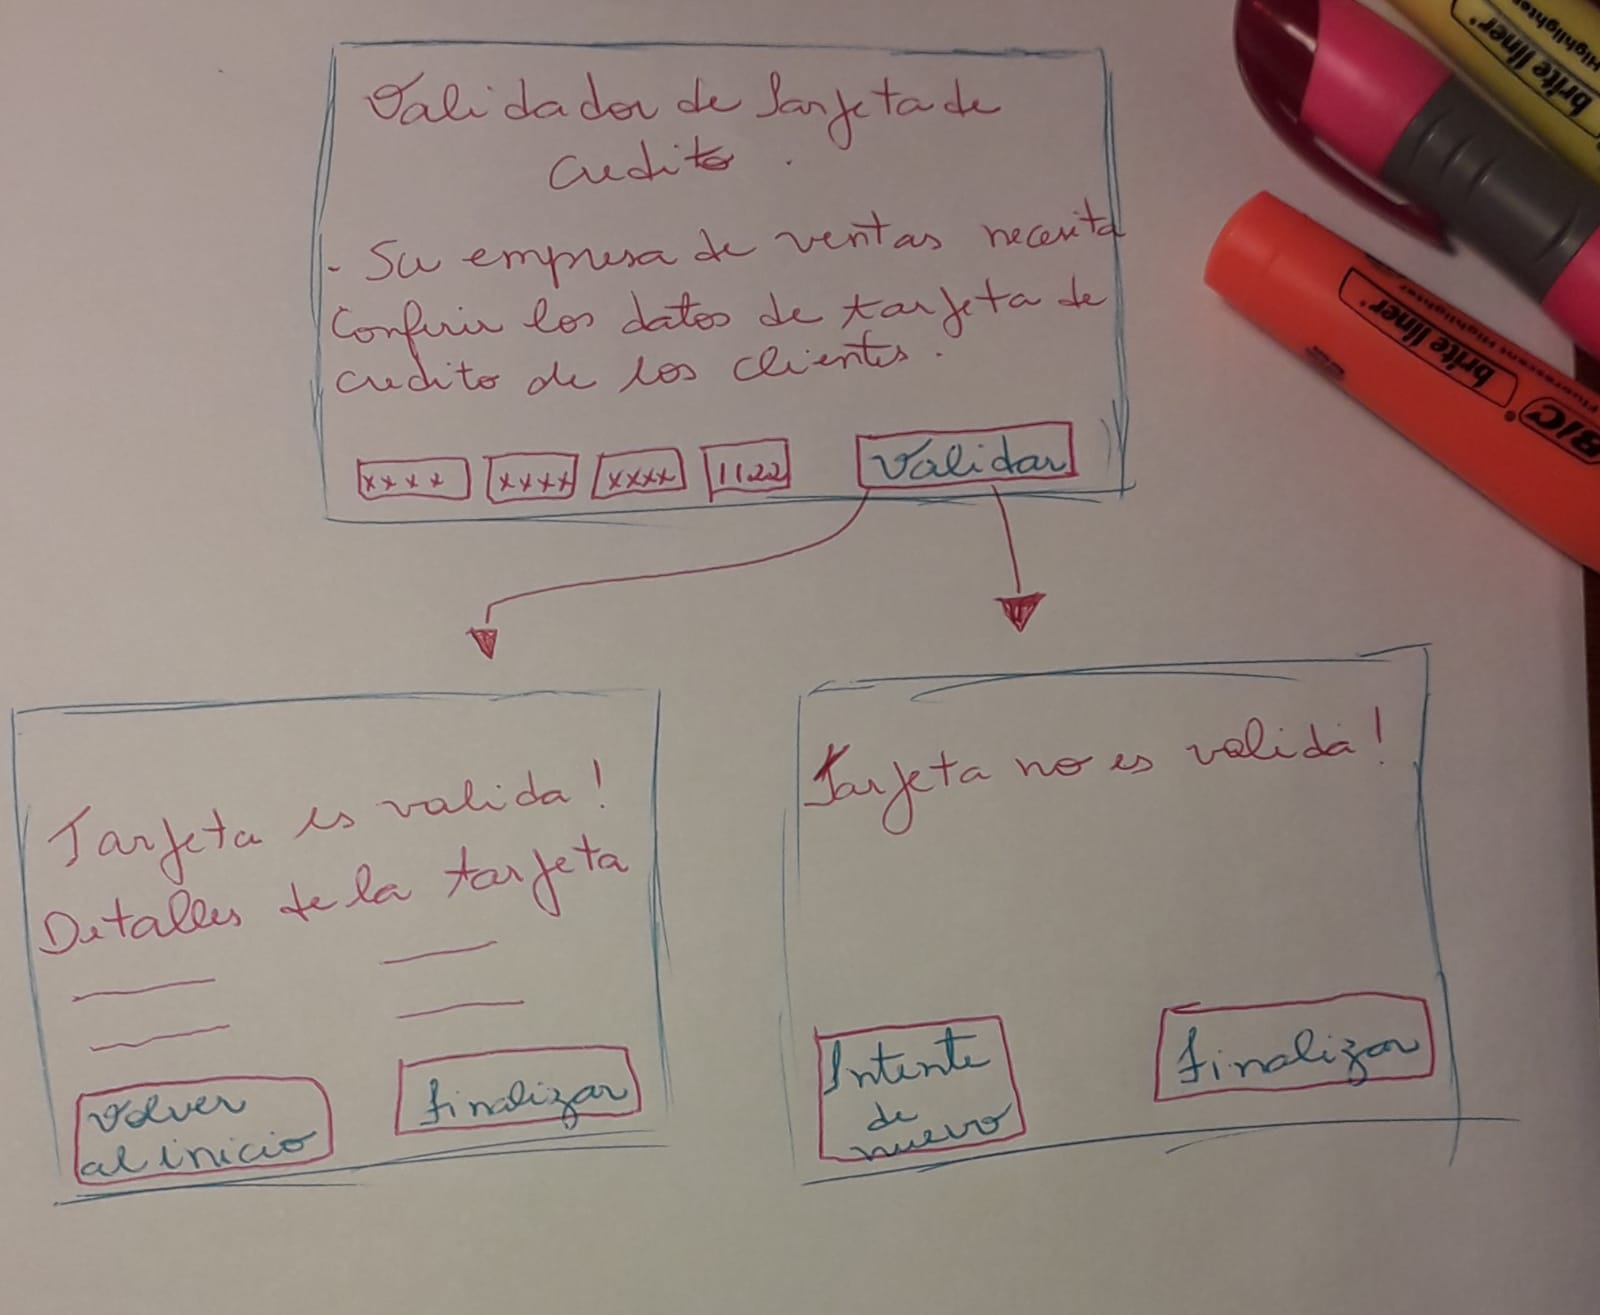 Validador de Tarjeta de
credito.
- Su empresa de ventas necesita
Conferir los datos de tarjeta de
credito de los clientes.
xxxx xxxx xxxx 1122 Validar
Tarjeta es valida!
Detalles de la tarjeta
Volver
al inicio
finalizar
Tarjeta no es valida!
Intente
de
nuevo
finalizar
brite liner
Highlighter
brite liner
Fluorescent Highlighter
BIC